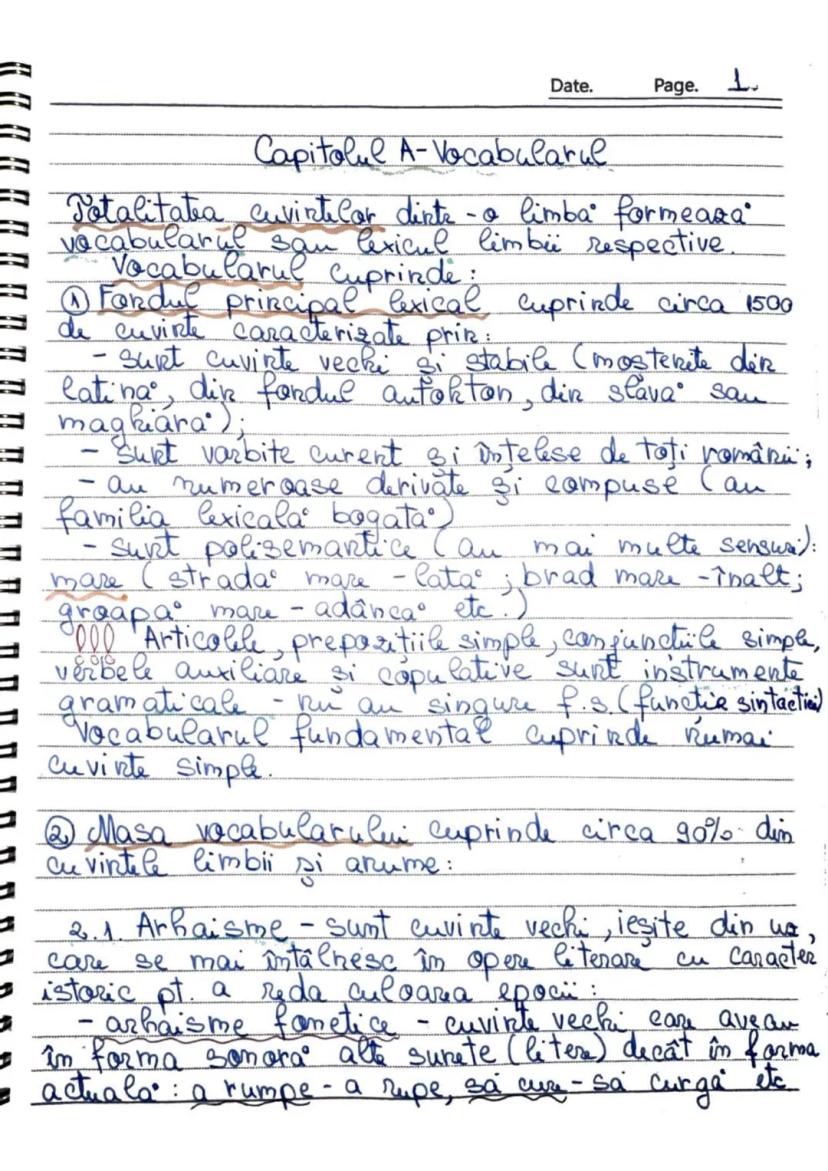 Date. Page. 1.
Capitolul A-Vocabularul
Totalitatea cuvintelor dintr-o limbă formează
vocabularul sau lexicul limbii respective.
Vocabularul cuprinde:
① Fondul principal lexical cuprinde circa 1500
de cuvinte caracterizate prin:
- sunt cuvinte vechi și stabile (moștenite din
latină, din fondul autohton, din slavă sau
maghiară);
- sunt vorbite curent și înțelese de toți românii;
- au numeroase derivate și compuse (au
familia lexicală bogată)
- sunt polisemantice (au mai multe sensuri):
mare (stradă mare - lată; brad mare - înalt;
groapă mare - adâncă etc.)
!!! Articolele, prepozițiile simple, conjuncțiile simple,
verbele auxiliare și copulative sunt instrumente
gramaticale - nu au singure f.s. (funcție sintactică)
Vocabularul fundamental cuprinde numai
cuvinte simple.
② Masa vocabularului cuprinde circa 90% din
cuvintele limbii și anume:
2.1 Arhaisme - sunt cuvinte vechi, ieșite din uz,
care se mai întâlnesc în opere literare cu caracter
istoric pt. a reda culoarea epocii:
- arhaisme fonetice - cuvinte vechi care aveau
în forma sonoră alte sunete (litere) decât în forma
actuală: a rumpe - a rupe, să cure - să curgă etc